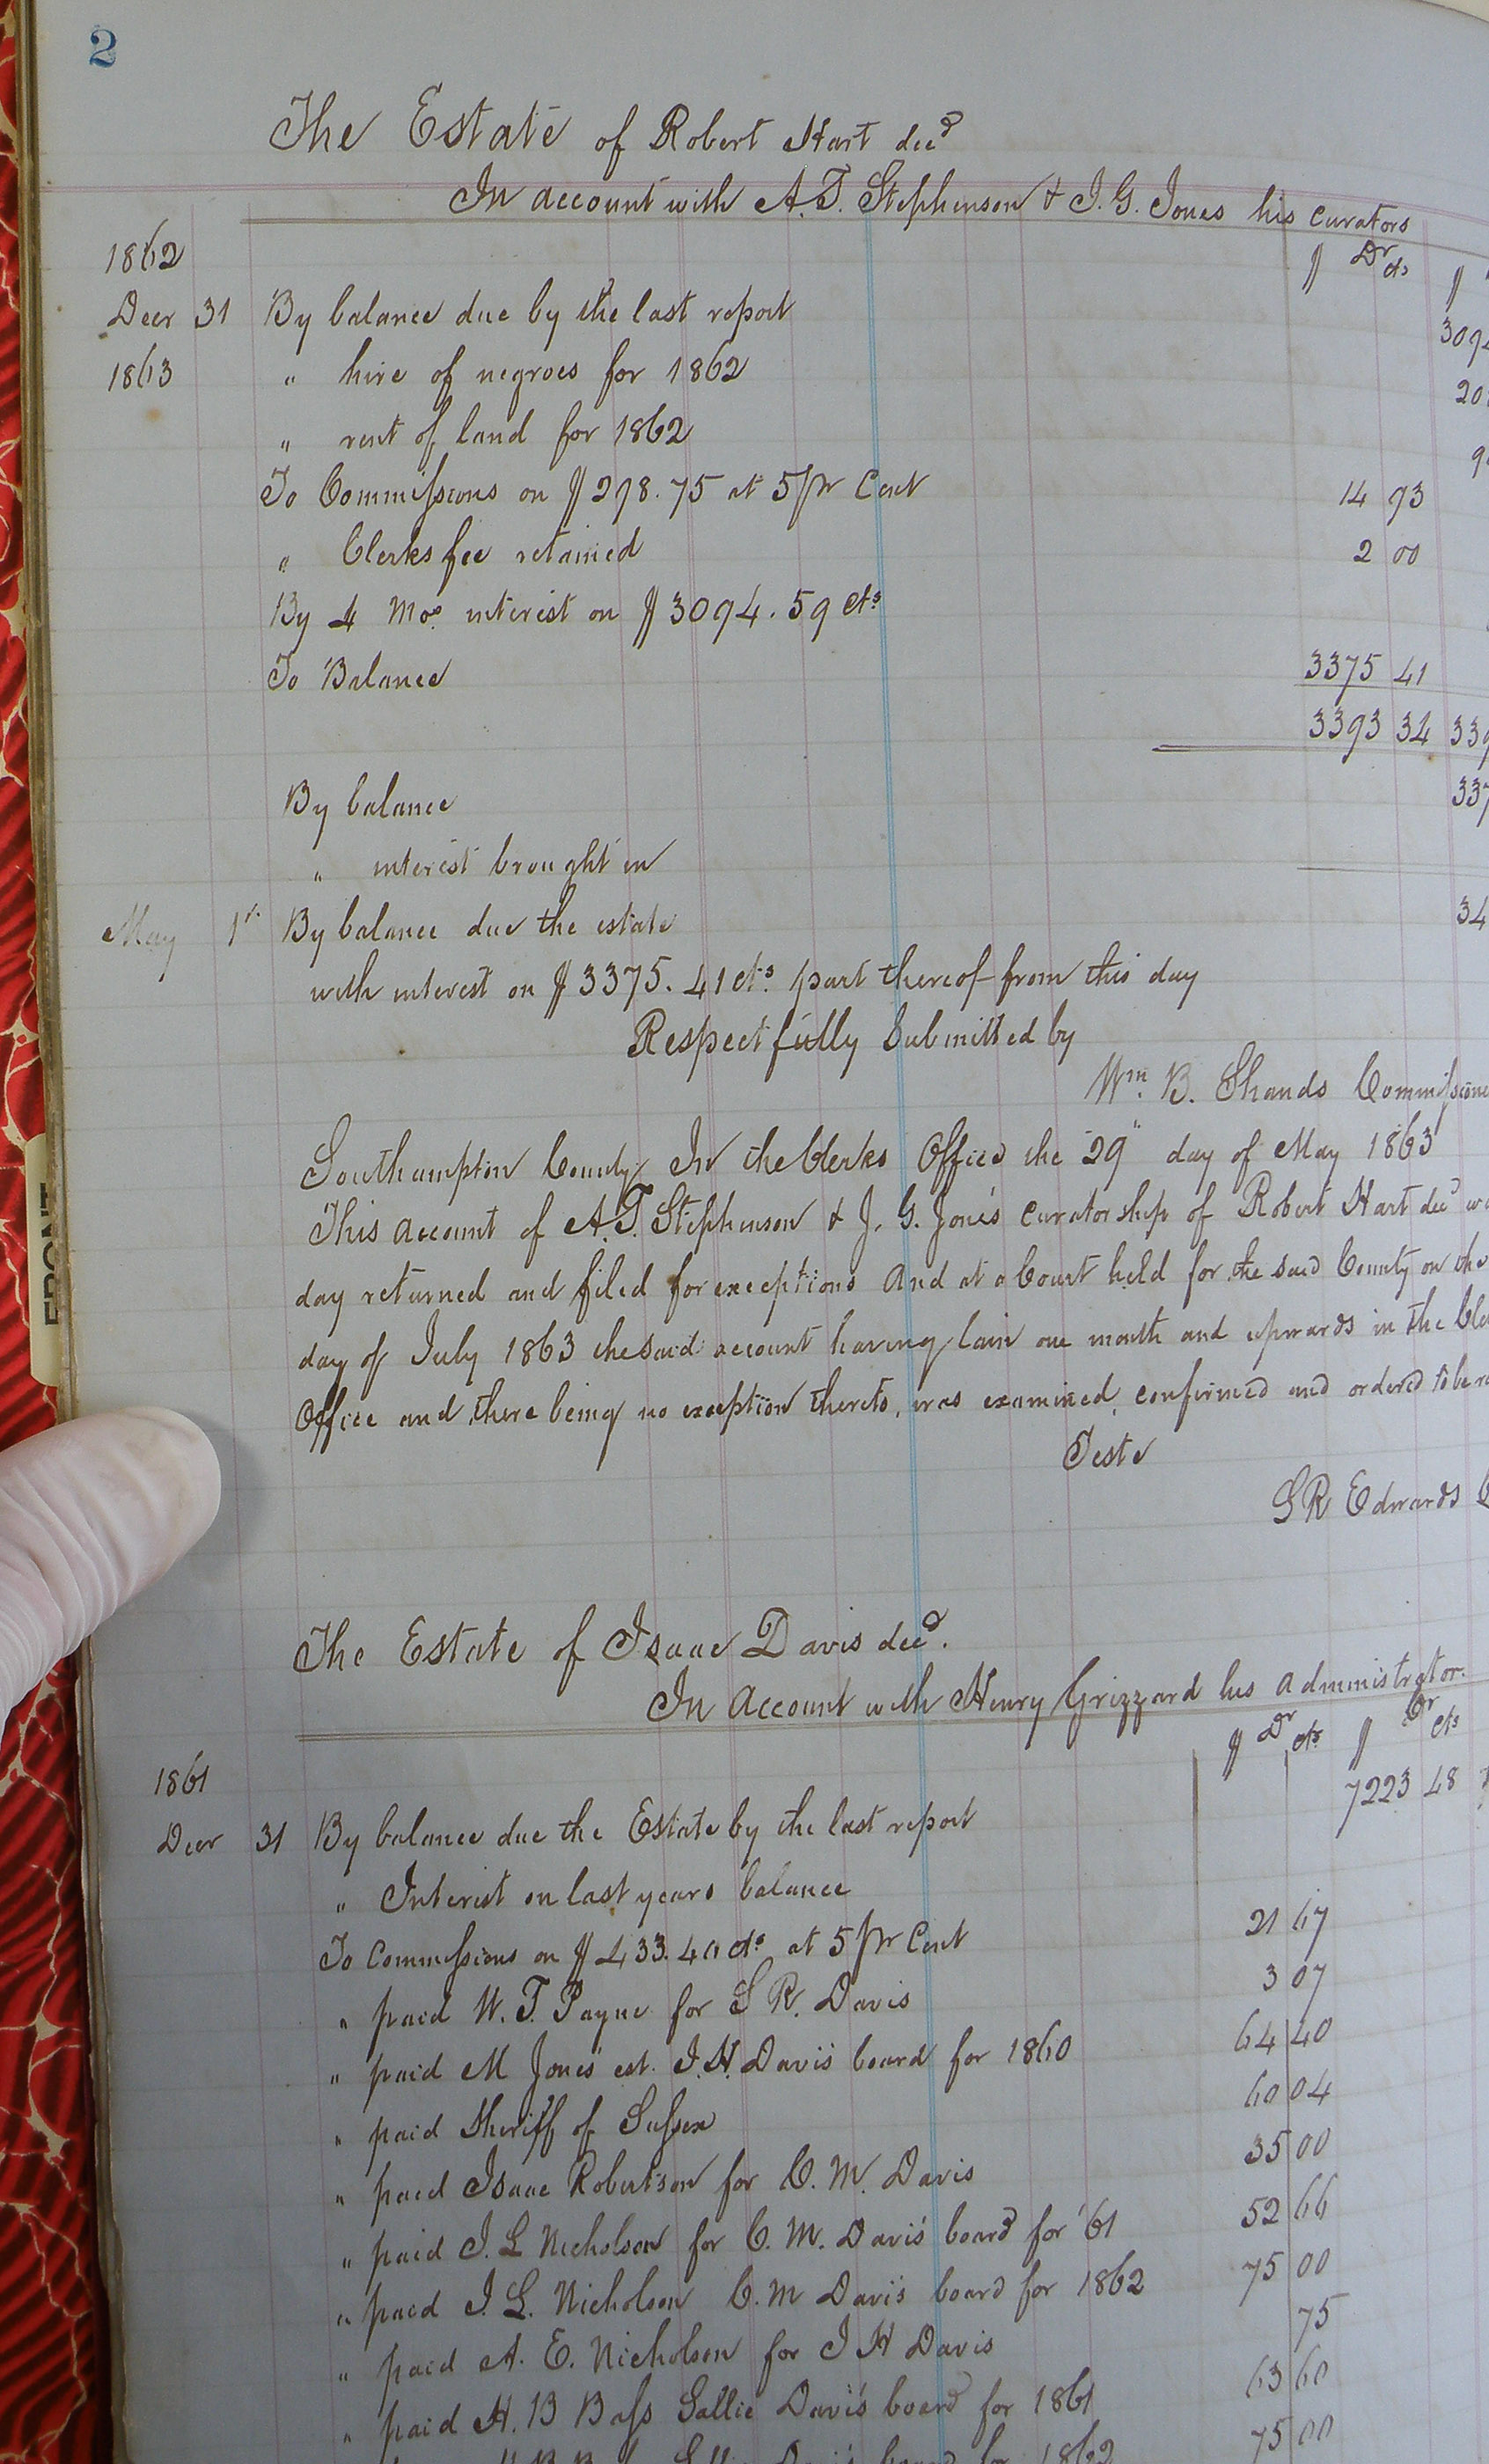 2
The Estate of Robert Hart decd
In account with A.T. Stephenson & J. G. Jones his curators
$ Dr cts $
1862
Decr 31 By balance due by the last report 309
1863 " hire of negroes for 1862 20
" rent of land for 1862 9
To Commissions on $298.75 at 5 pr Cent 14 93
" Clerks fee retained 2 00
By 4 Mos. interest on $3094.59 cts
To Balance 3375 41
3393 34 339
By balance 337
" interest brought in
May 1st By balance due the estate 34
with interest on $3375.41 cts part thereof from this day
Respectfully Submitted by
Wm. B. Shands Commissione
Southampton County In the Clerks Office the 29" day of May 1863
This account of A.T. Stephenson & J. G. Jones curatorship of Robert Hart decd wa
day returned and filed for exceptions And at a Court held for the said County on the
day of July 1863 the said account having lain one month and upwards in the Cle
Office and there being no exception thereto, was examined, confirmed and ordered to be re
Teste
S R Edwards C
The Estate of Isaac Davis decd.
In Account with Henry Grizzard his administrator.
$ Dr cts $ Cr cts
1861
Decr 31 By balance due the Estate by the last report 7223 48
" Interest on last years balance
To Commissions on $433.40 cts at 5 pr Cent 21 67
" paid W. T. Payne for S R. Davis 3 07
" paid M Jones' est. J. H. Davis board for 1860 64 40
" paid Sheriff of Sussex 60 04
" paid Isaac Robertson for C. M. Davis 35 00
" paid J. L Nicholson for C. M. Davis board for '61 52 66
" paid J. L. Nicholson C. M Davis board for 1862 75 00
" paid A. E. Nicholson for J H Davis 75
" paid H. B Bass Sallie Davis board for 1861 63 60
board for 1862 75 00
FRONT